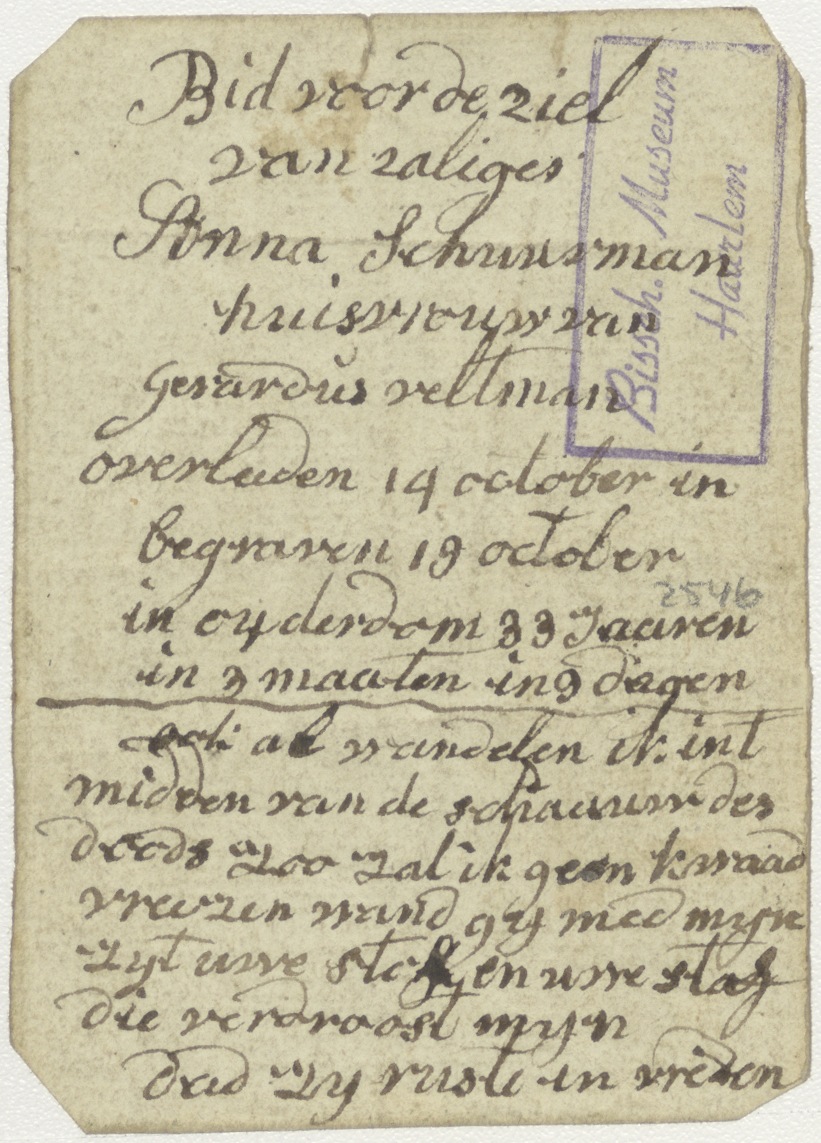 Bid voor de ziel
van zaliges
Anna Schuurman
huisvrouw van
gerardus veltman
overleden 14 october in
begraven 19 october
in ouderdom 33 Jaaren
in 3 maaten in 9 dagen
al wandelen ik int
midden van de schaauw des
doods zoo zal ik geen kwaad
vreezen wand gy med myn
zyt uwe stok en uwe staf
die verdroost myn
dad zy ruste in vreden
Bissch. Museum
Haarlem
2546